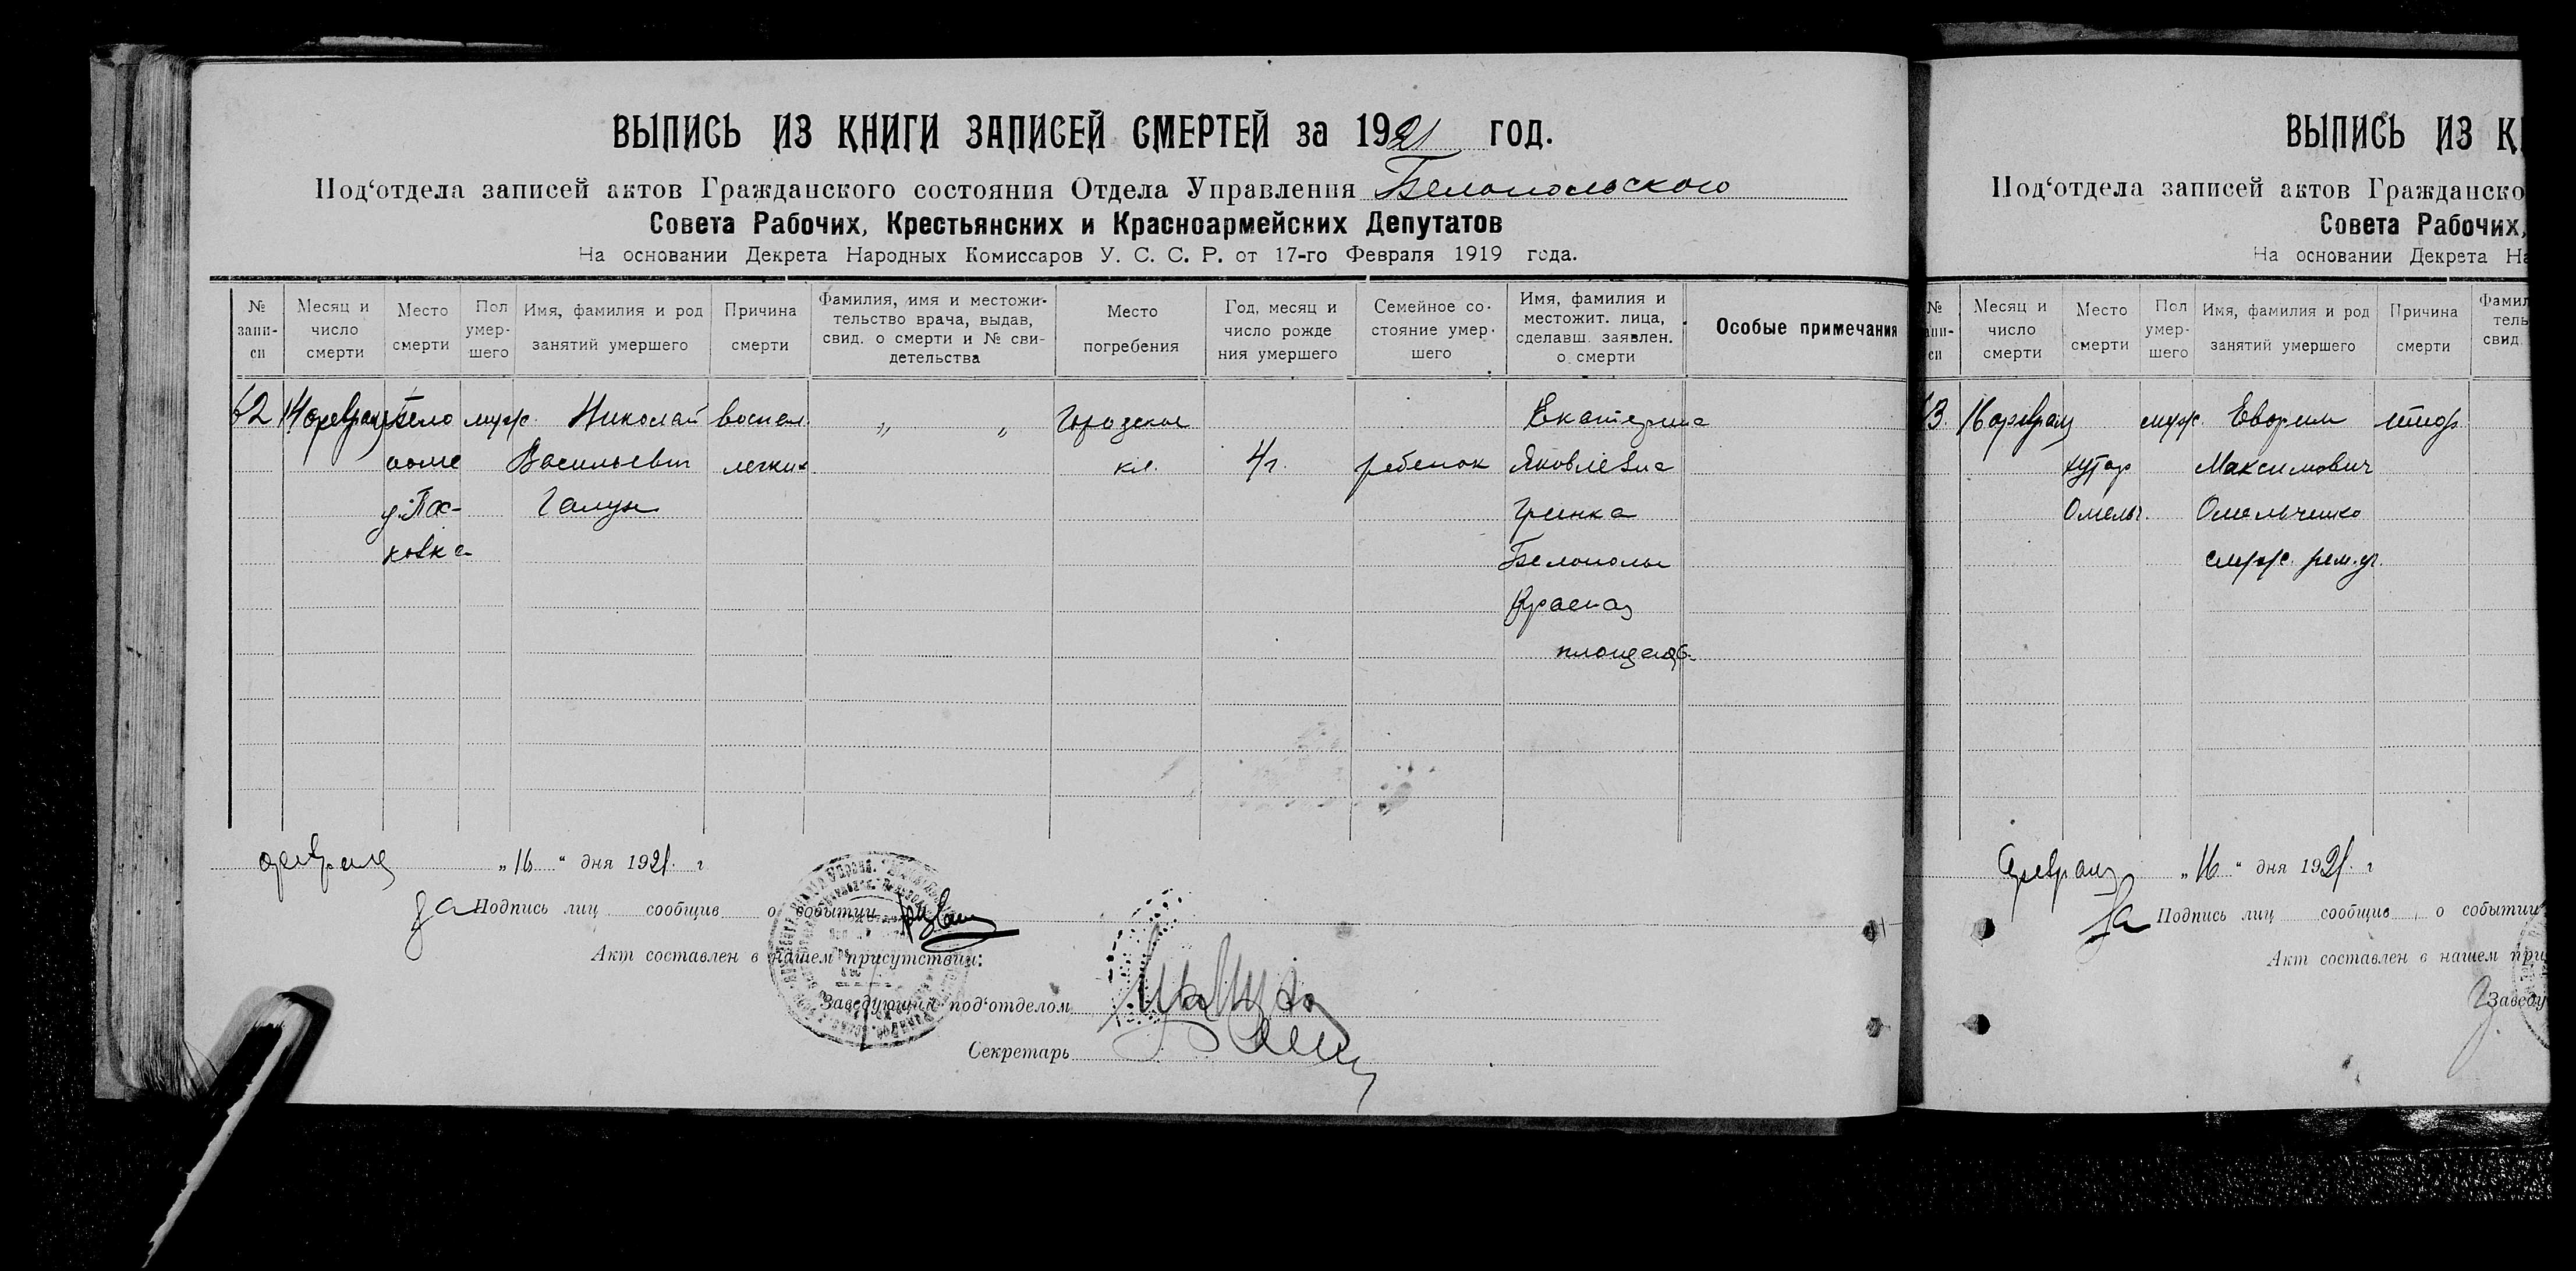 ВЫПИСЬ ИЗ КНИГИ ЗАПИСЕЙ СМЕРТЕЙ за 1921 год.
Под‘отдела записей актов Гражданского состояния Отдела Управления Белопольского
Совета Рабочих, Крестьянских и Красноармейских Депутатов
На основании Декрета Народных Комиссаров У. С. С. Р. от 17-го Февраля 1919 года.
№ запи-си
Месяц и число смерти
Место смерти
Пол умер-шего
Имя, фамилия и род занятий умершего
Причина смерти
Фамилия, имя и местожи-тельство врача, выдав, свид. о смерти и № сви-детельства
Место погребения
Год, месяц и число рожде ния умершего
Семейное со-стояние умер-шего
Имя, фамилия и местожит. лица, сделавш. заявлен. о смерти
Особые примечания
62 14 февраля Бело муж. Николай воспал. „ „ Городское Екатерина
поле Васильевич легких кл. 4 г. ребенок Яковлевна
у. Пас- Галун Гринка
ковка Белополье
Красная
площадь
февраля „16“ дня 1921 г
За Подпись лиц сообщив о событии
Акт составлен в нашем присутствии:
Заведующий под‘отделом
Секретарь
ВЫПИСЬ ИЗ К
Под‘отдела записей актов Гражданско
Совета Рабочих,
На основании Декрета На
№ апи-си
Месяц и число смерти
Место смерти
Пол умер-шего
Имя, фамилия и род занятий умершего
Причина смерти
Фамил тель свид.
63 16 февраля муж. Ефрим тиф
хутор Максимович
Омельч. Омельченко
служ.
Февраля „16“ дня 1921 г
За Подпись лиц сообщив о событии
Акт составлен в нашем при
Заведу